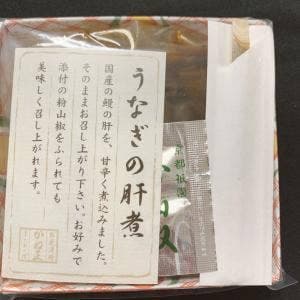 うなぎの肝煮
国産の鰻の肝を、甘辛く煮込みました。
そのままお召し上がり下さい。お好みで
添付の粉山椒をふられても
美味しく召し上がれます。
かね正
京都祇園